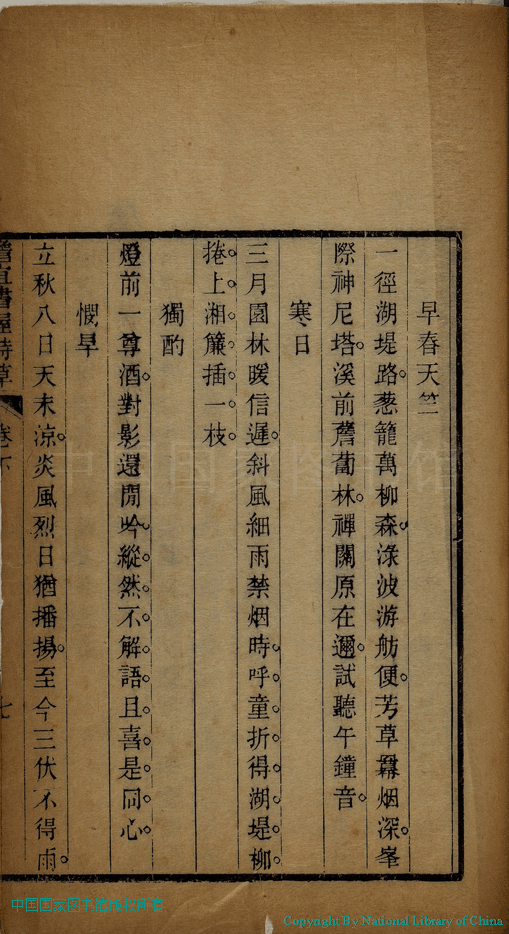 早春天竺
一徑湖堤路葱籠萬柳森淥波游舫便芳草羃烟深峯
際神尼塔溪前薝蔔林禪關原在邇試聽午鐘音
寒日
三月園林暖信遲斜風細雨禁烟時呼童折得湖堤柳
捲上湘簾插一枝
獨酌
燈前一尊酒對影還閒吟縱然不解語且喜是同心
憫旱
立秋八日天末涼炎風烈日猶播揚至今三伏不得雨
書屋詩草
卷下
七
中国国家图书馆
中国国家图书馆版权所有
Copyright By National Library of China